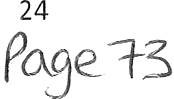 24
Page 73